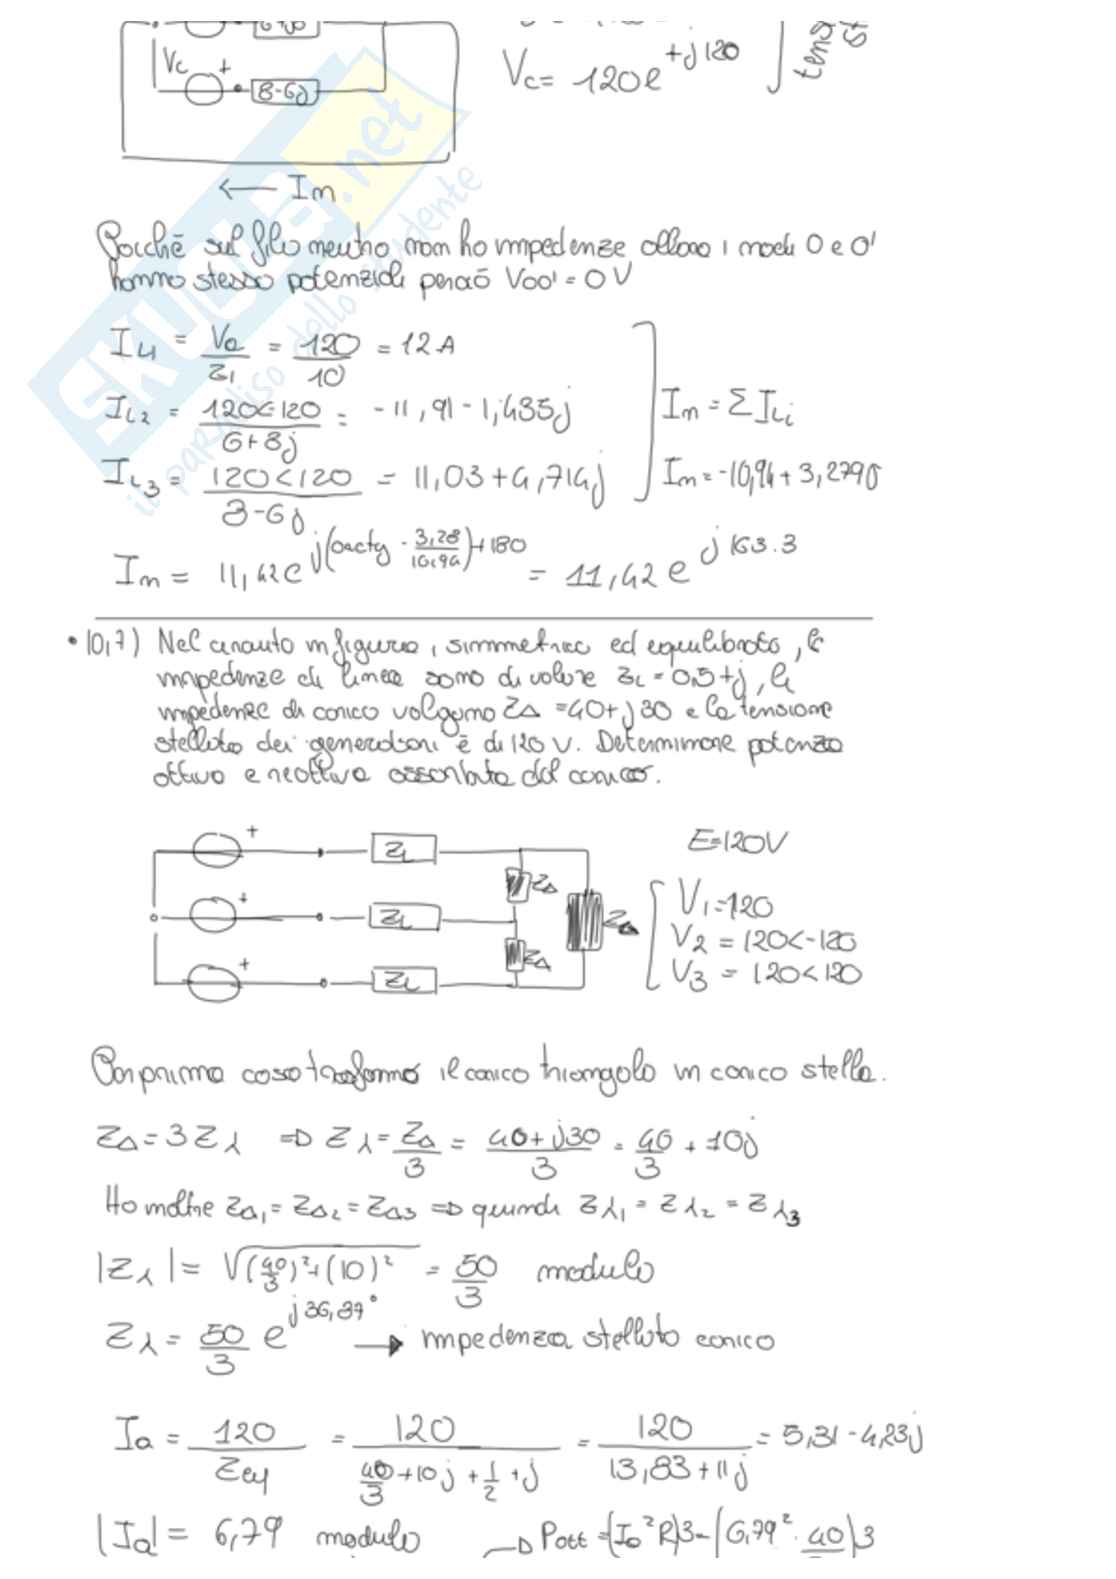 Vc + 8-6j
Vc = 120e^{+j120}
← Im
Poiché sul filo neutro non ho impedenze allora i nodi O e O'
hanno stesso potenziale perciò Voo' = 0V
IL1 = Va/Z1 = 120/10 = 12A
IL2 = 120<-120/6+8j = -11,91-1,435j
Im = ΣILi
IL3 = 120<120/8-6j = 11,03+4,714j
Im = -10,94+3,279j
Im = 11,42e^{j(arctg -3,28/10,94)+180} = 11,42e^{j163.3}
• 10,7) Nel circuito in figura, simmetrico ed equilibrato, le
impedenze di linea sono di valore ZL=0,5+j, le
impedenze di carico valgono ZΔ=40+j30 e la tensione
stellata dei generatori è di 120 V. Determinare potenza
attiva e reattiva assorbita dal carico.
E=120V
+ ZL ZΔ
V1=120
+ ZL ZΔ
V2 = 120<-120
+ ZL ZΔ
V3 = 120<120
Con prima cosa trasformo il carico triangolo in carico stella.
ZΔ=3Zλ ⇒ Zλ=ZΔ/3 = 40+j30/3 = 40/3 + 10j
Ho inoltre ZΔ1=ZΔ2=ZΔ3 ⇒ quindi Zλ1=Zλ2=Zλ3
|Zλ|= √(40/3)²+(10)² = 50/3 modulo
Zλ= 50/3 e^{j36,87°} → impedenza stellata carico
Ia = 120/Zeq = 120/40/3+10j+1/2+j = 120/13,83+11j = 5,31-4,23j
|Ia|= 6,79 modulo → Patt=(Ia²R)3=(6,79²·40)3
SKUOLA.net
il paradiso dello studente